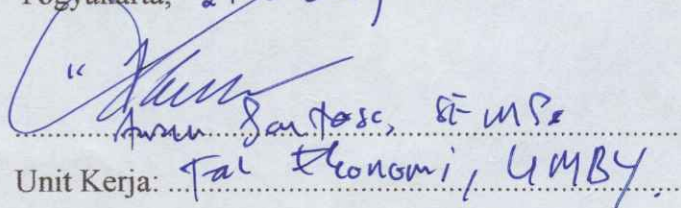 Yogyakarta, 24
Santosa, SE MSc
Unit Kerja: Fak Ekonomi, UMBY.